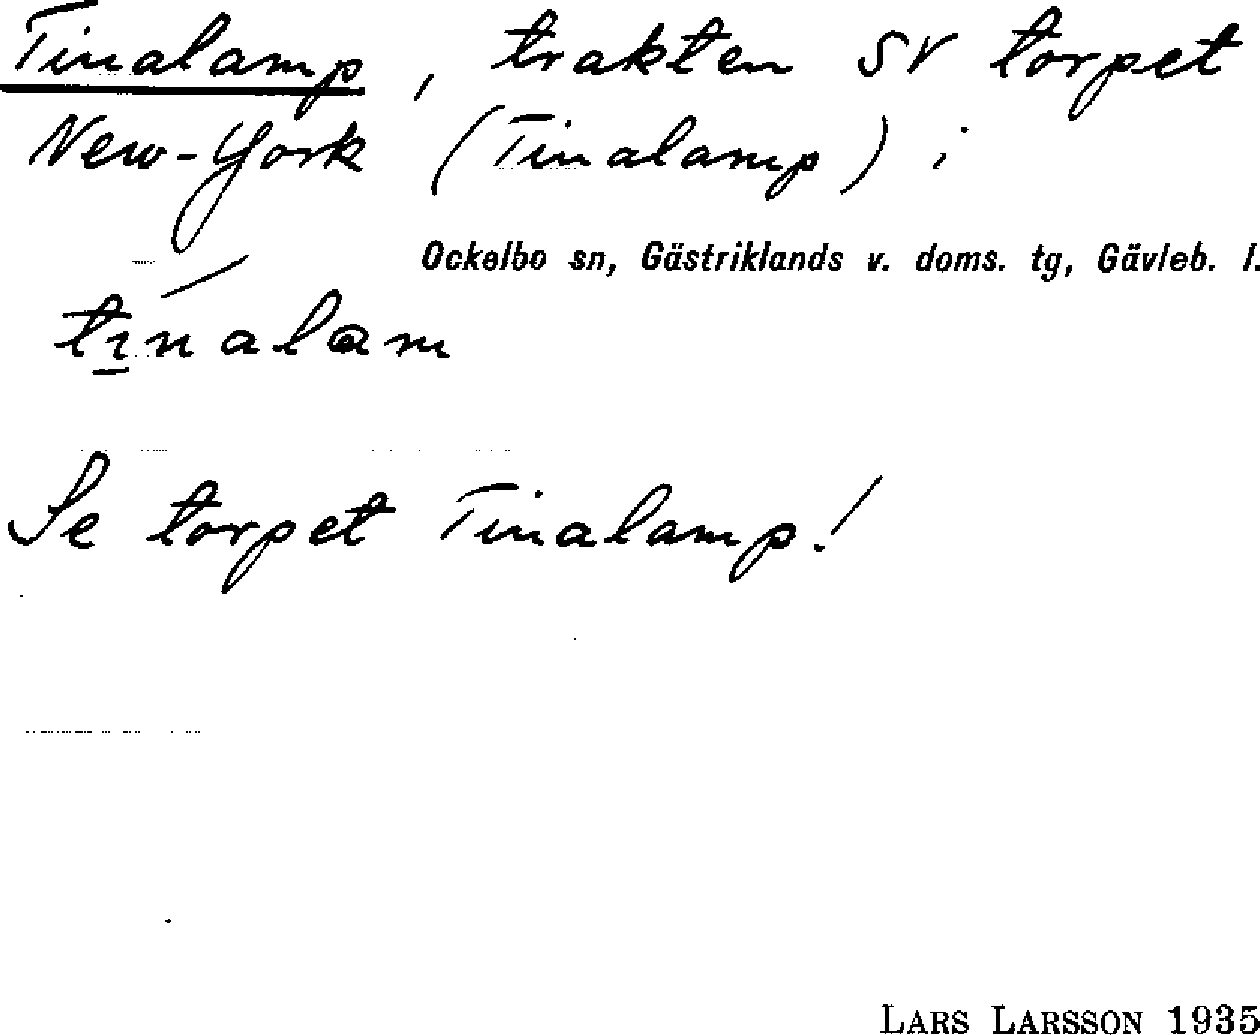 Tinalamp, trakten SV torpet
New-York (Tinalamp) i
Ockelbo sn, Gästriklands v. doms. tg, Gävleb. l.
tı̱́nalam
Se torpet Tinalamp!
LARS LARSSON 1935